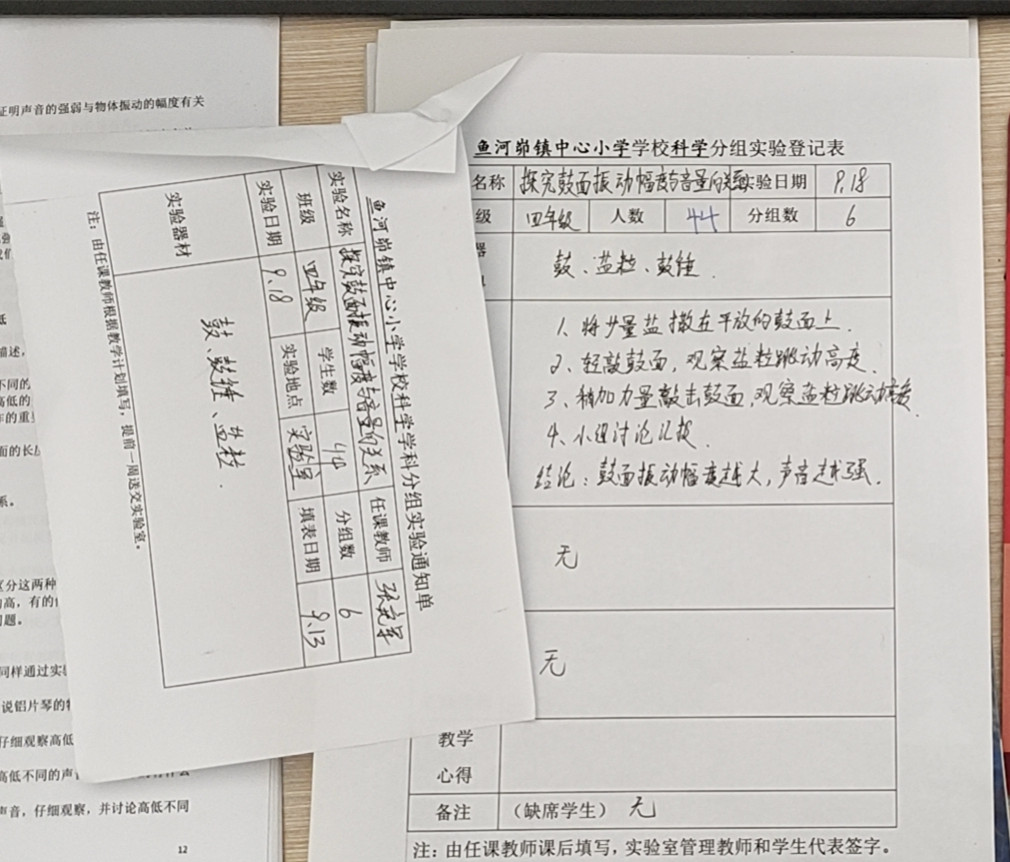 证明声音的强弱与物体振动的幅度有关
低
描述，
不同的
高低的
作的重
面的长
系。
区分这两种
高，有的
问题。
同样通过实
说铝片琴的
仔细观察高低
高低不同的声
声音，仔细观察，并讨论高低不同
12
鱼河峁镇中心小学学校科学学科分组实验通知单
实验名称 探究鼓面振动幅度与音量的关系 任课教师
班级 四年级 学生数 44 分组数 6
实验日期 9.18 实验地点 实验室 填表日期 9.13
实验器材 鼓、鼓锤、盐粒．
注：由任课教师根据教学计划填写，提前一周送交实验室。
鱼河峁镇中心小学学校科学分组实验登记表
名称 探究鼓面振动幅度与音量的关系 实验日期 9.18
级 四年级 人数 44 分组数 6
器 鼓、盐粒、鼓锤．
1、将少量盐撒在平放的鼓面上．
2、轻敲鼓面，观察盐粒跳动高度．
3、稍加力量敲击鼓面，观察盐粒跳动高度．
4、小组讨论汇报．
结论：鼓面振动幅度越大，声音越强．
无
无
教学
心得
备注 （缺席学生） 无
注：由任课教师课后填写，实验室管理教师和学生代表签字。